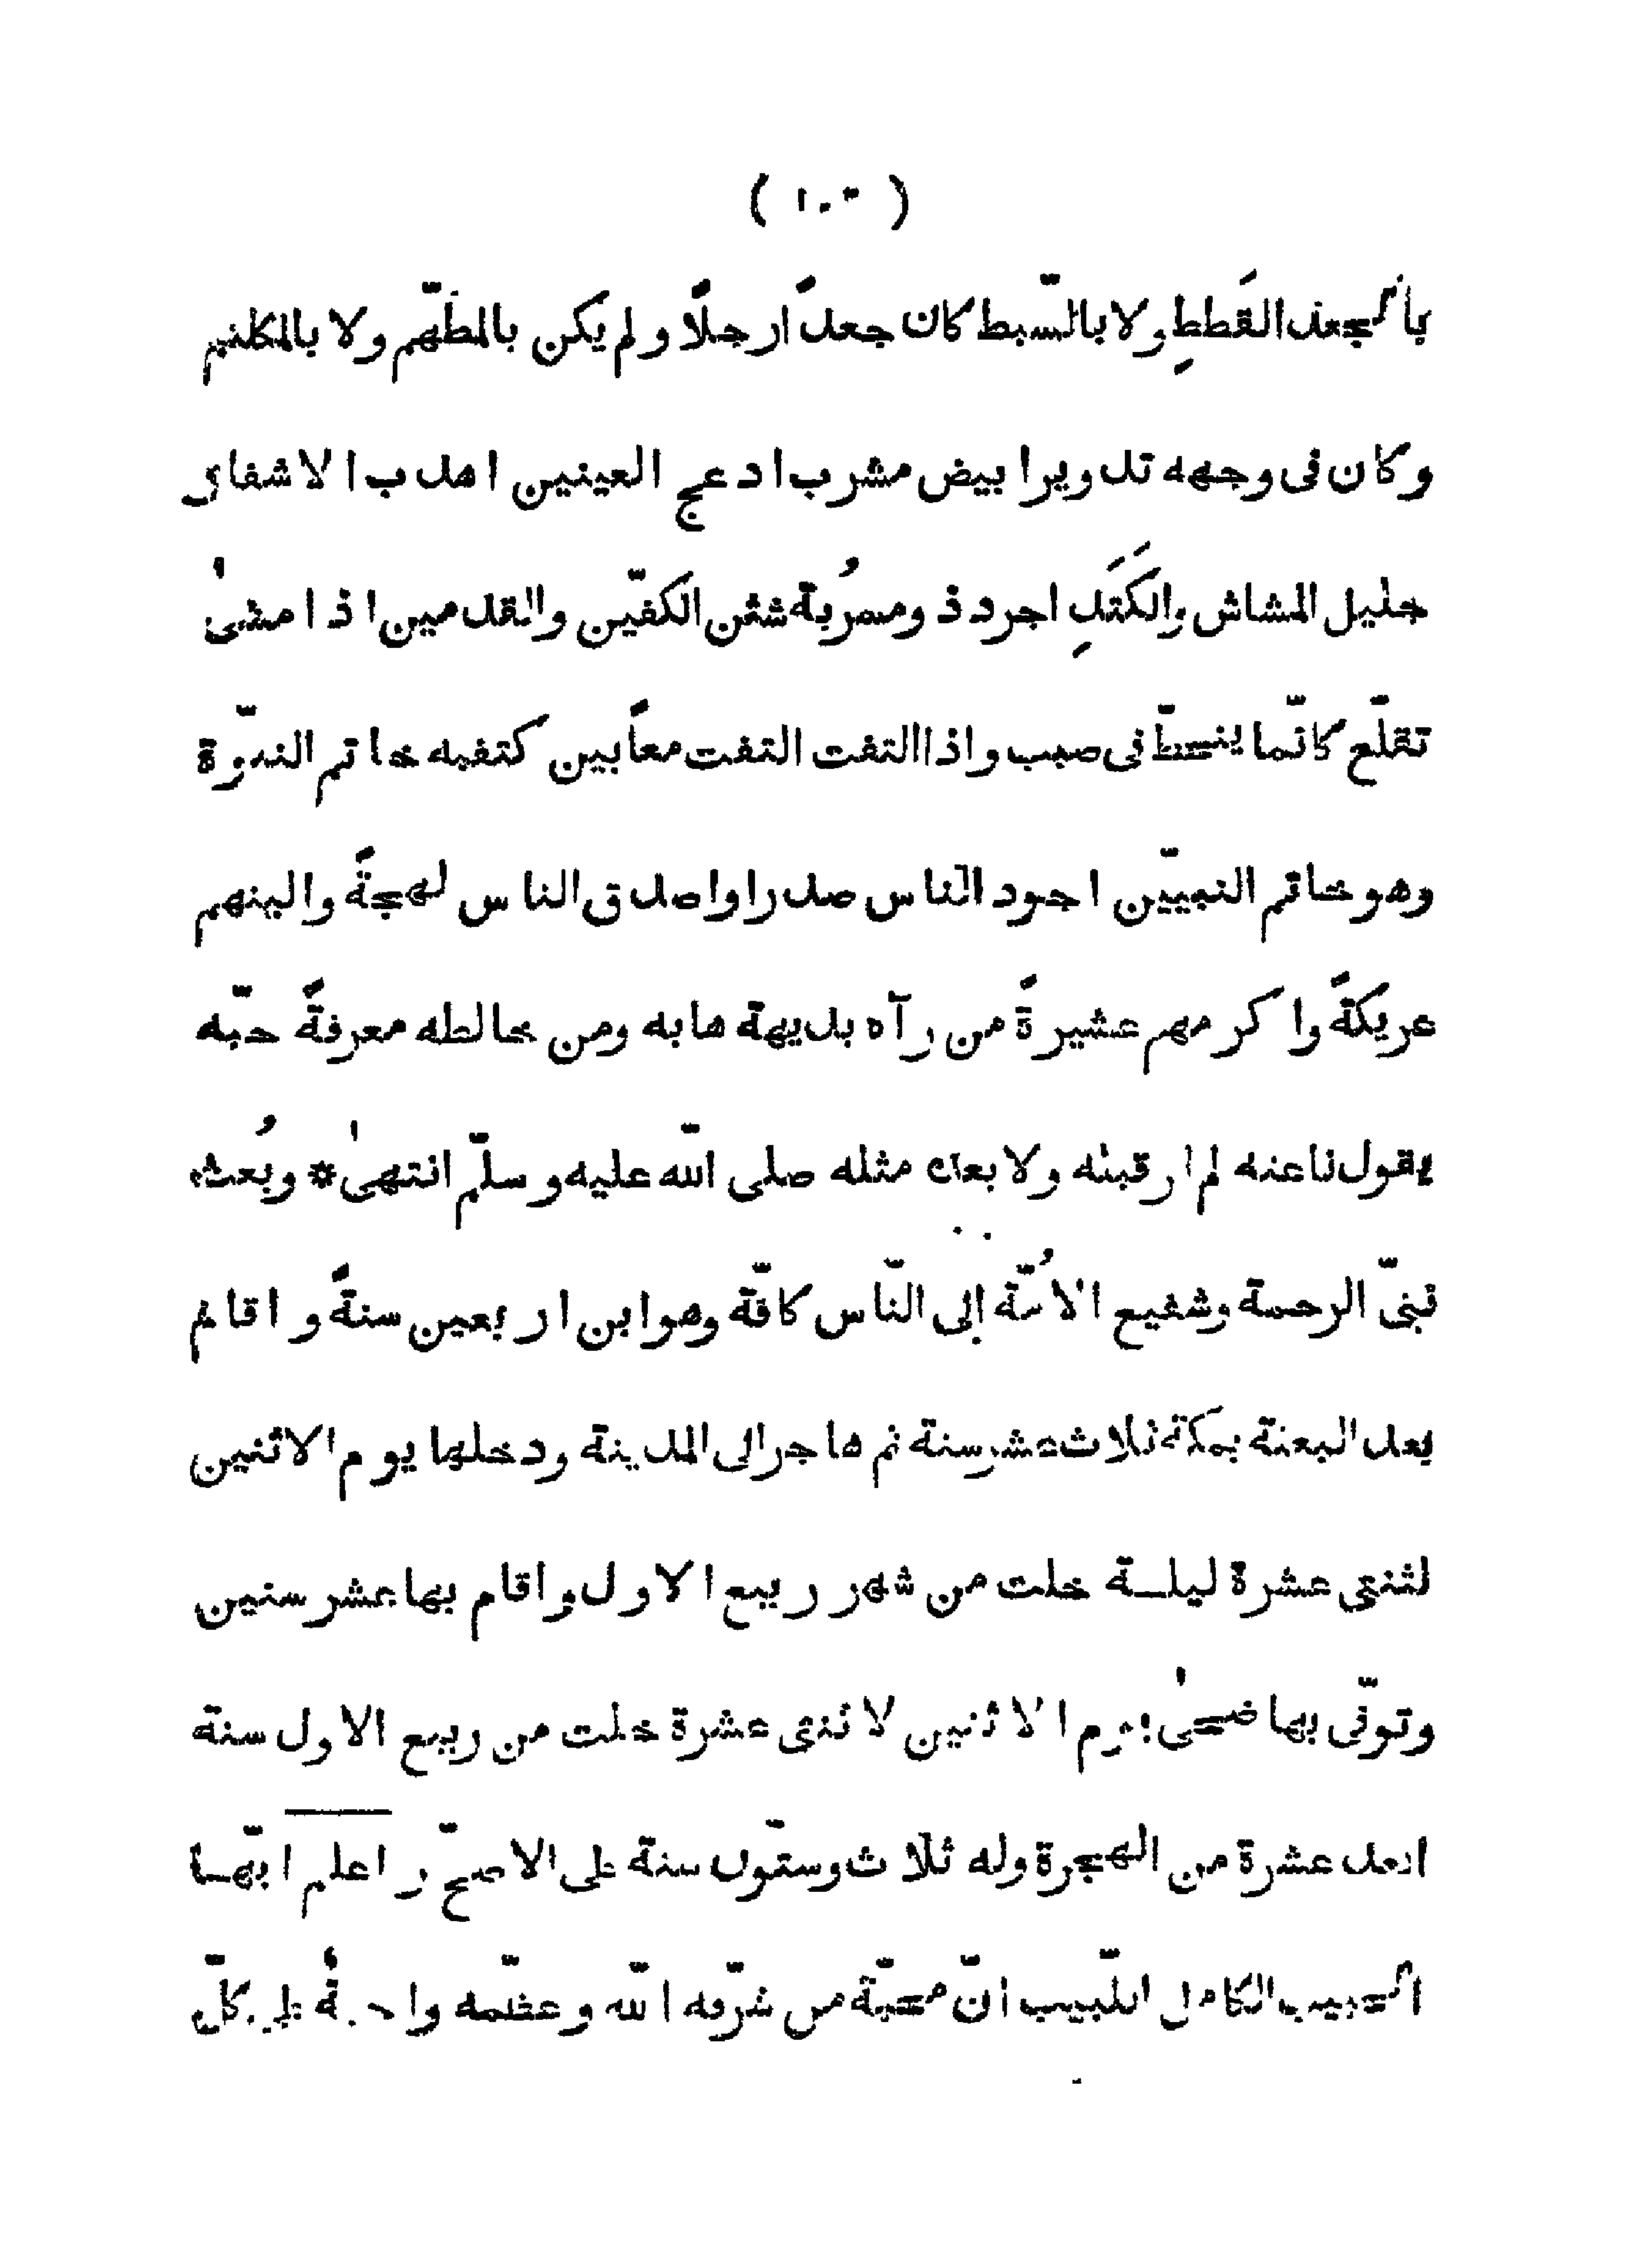 ( ١٠٣ )
بالجعد القَططِ ولا بالسّبط كان جعداً رجلًا ولم يكن بالمطهّم ولا بالمكلثم
وكان فى وجهه تدويرا بيض مشرب ادعج العينين اهدب الاشفار
جليل المشاش والكَتَدِ اجرد ذو مسرُبة شثن الكفّين والقدمين اذا مشىٰ
تقلّع كانّما ينحطّ فى صبب واذا التفت التفت معاً بين كتفيه خاتم النبوّة
وهو خاتم النبييّن اجود الناس صدرا واصدق الناس لهجةً والينهم
عريكةً واكرمهم عشيرةً من رآه بديهة هابه ومن خالطه معرفةً حبّه
يقول ناعته لم ار قبله ولا بعده مثله صلى اللّه عليه وسلّم انتهىٰ * وبُعث
نبىّ الرحمة وشفيع الاُمّة إلى النّاس كافّة وهو ابن اربعين سنةً واقام
بعد البعثة بمكة ثلاث عشر سنة ثم هاجر الى المدينة ودخلها يوم الاثنين
لثنتى عشرة ليلة خلت من شهر ربيع الاول واقام بها عشر سنين
وتوفّى بها ضحىٰ يوم الاثنين لاثنى عشرة خلت من ربيع الاول سنة
احد عشرة من الهجرة وله ثلاث وستّون سنة على الاصحّ واعلم ايّها
الحبيب الكامل اللّبيب انّ محبّة من شرّفه اللّه وعظّمه واجبةٌ على كلّ